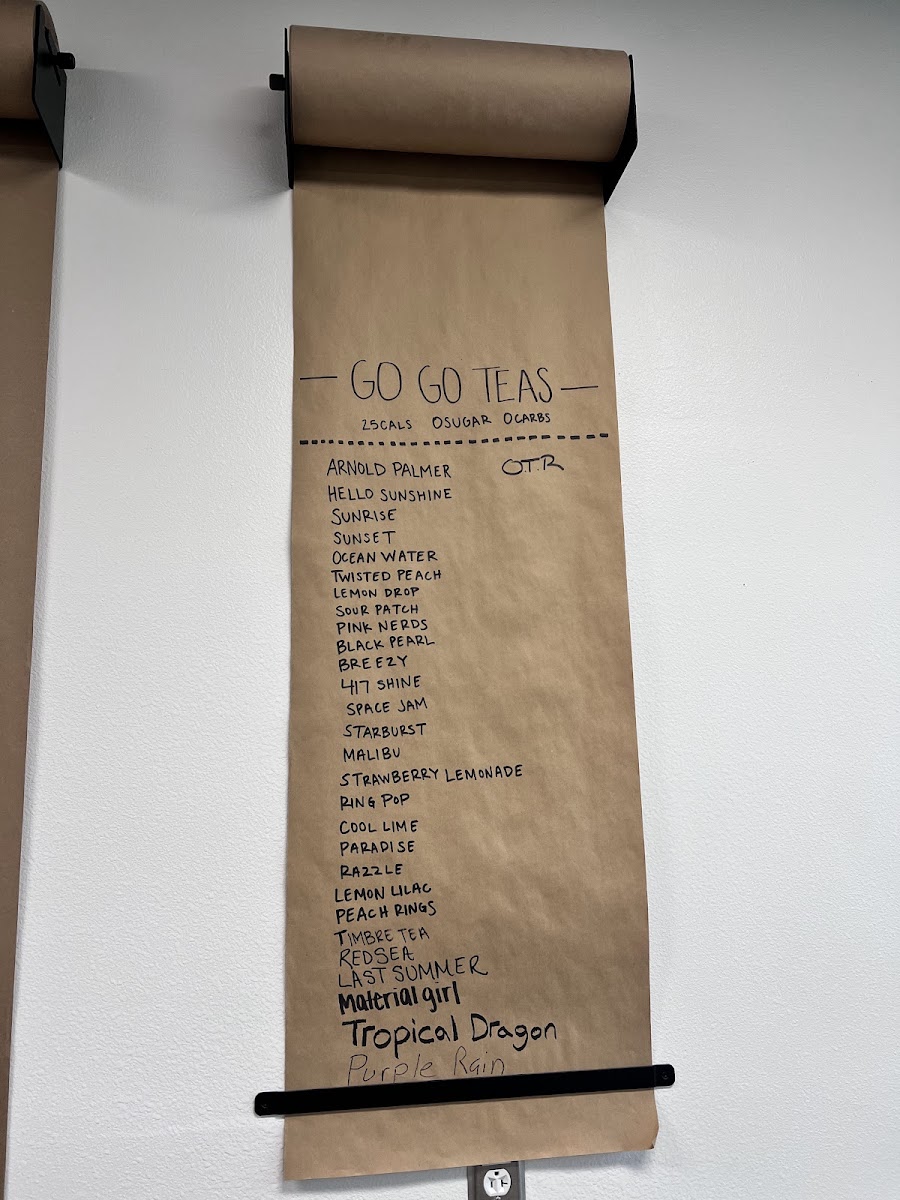 — GO GO TEAS —
25CALS 0SUGAR 0CARBS
ARNOLD PALMER O.T.R
HELLO SUNSHINE
SUNRISE
SUNSET
OCEAN WATER
TWISTED PEACH
LEMON DROP
SOUR PATCH
PINK NERDS
BLACK PEARL
BREEZY
417 SHINE
SPACE JAM
STARBURST
MALIBU
STRAWBERRY LEMONADE
RING POP
COOL LIME
PARADISE
RAZZLE
LEMON LILAC
PEACH RINGS
TIMBRE TEA
REDSEA
LAST SUMMER
Material girl
Tropical Dragon
Purple Rain